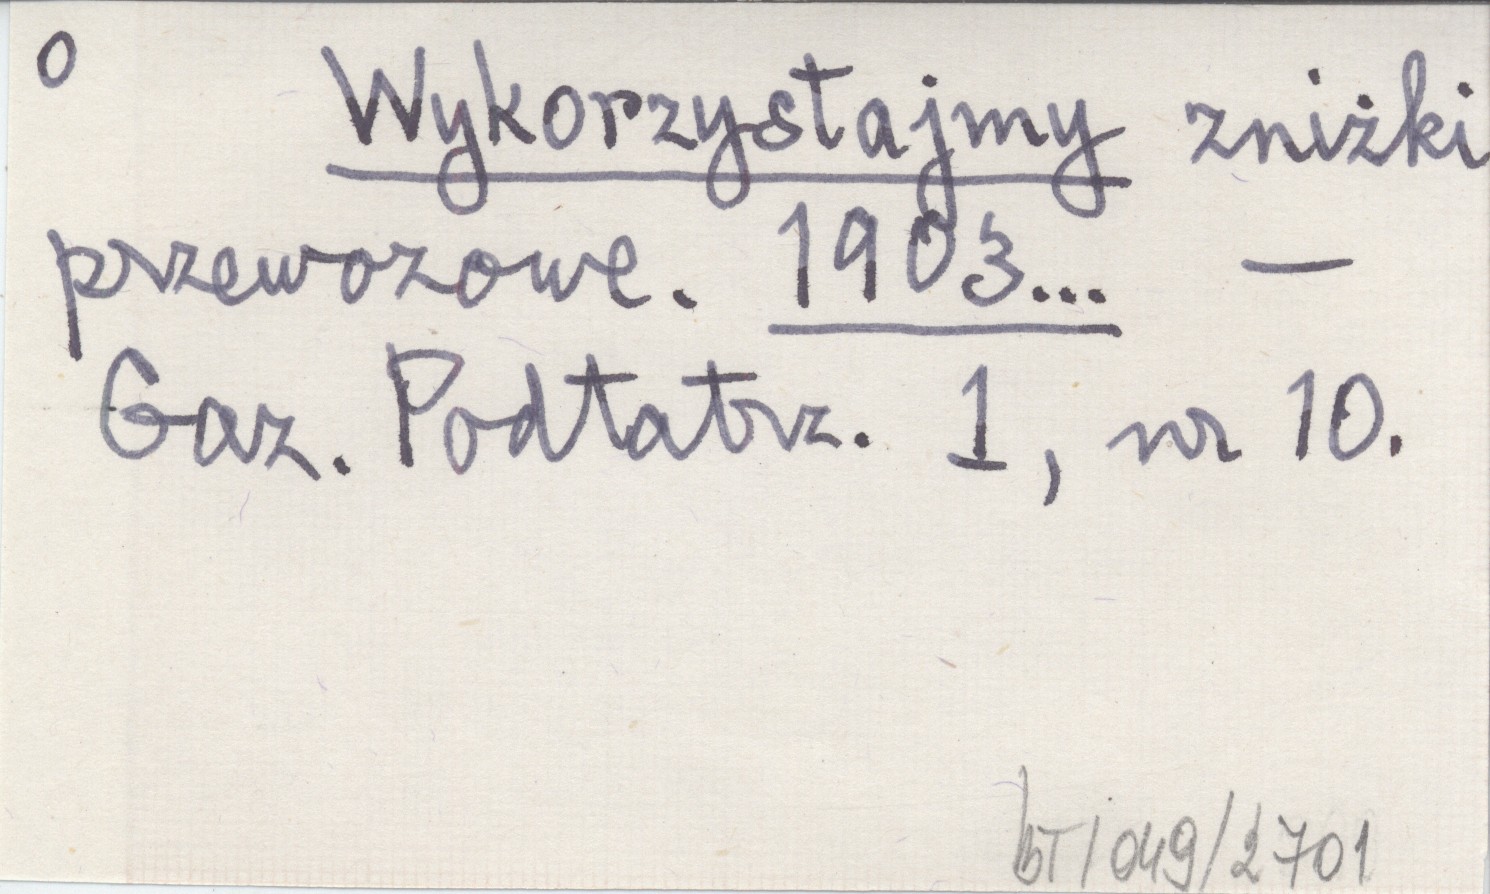 o Wykorzystajmy zniżki
przewozowe. 1903... —
Gaz. Podtatrz. 1, nr 10.
bT/049/2701